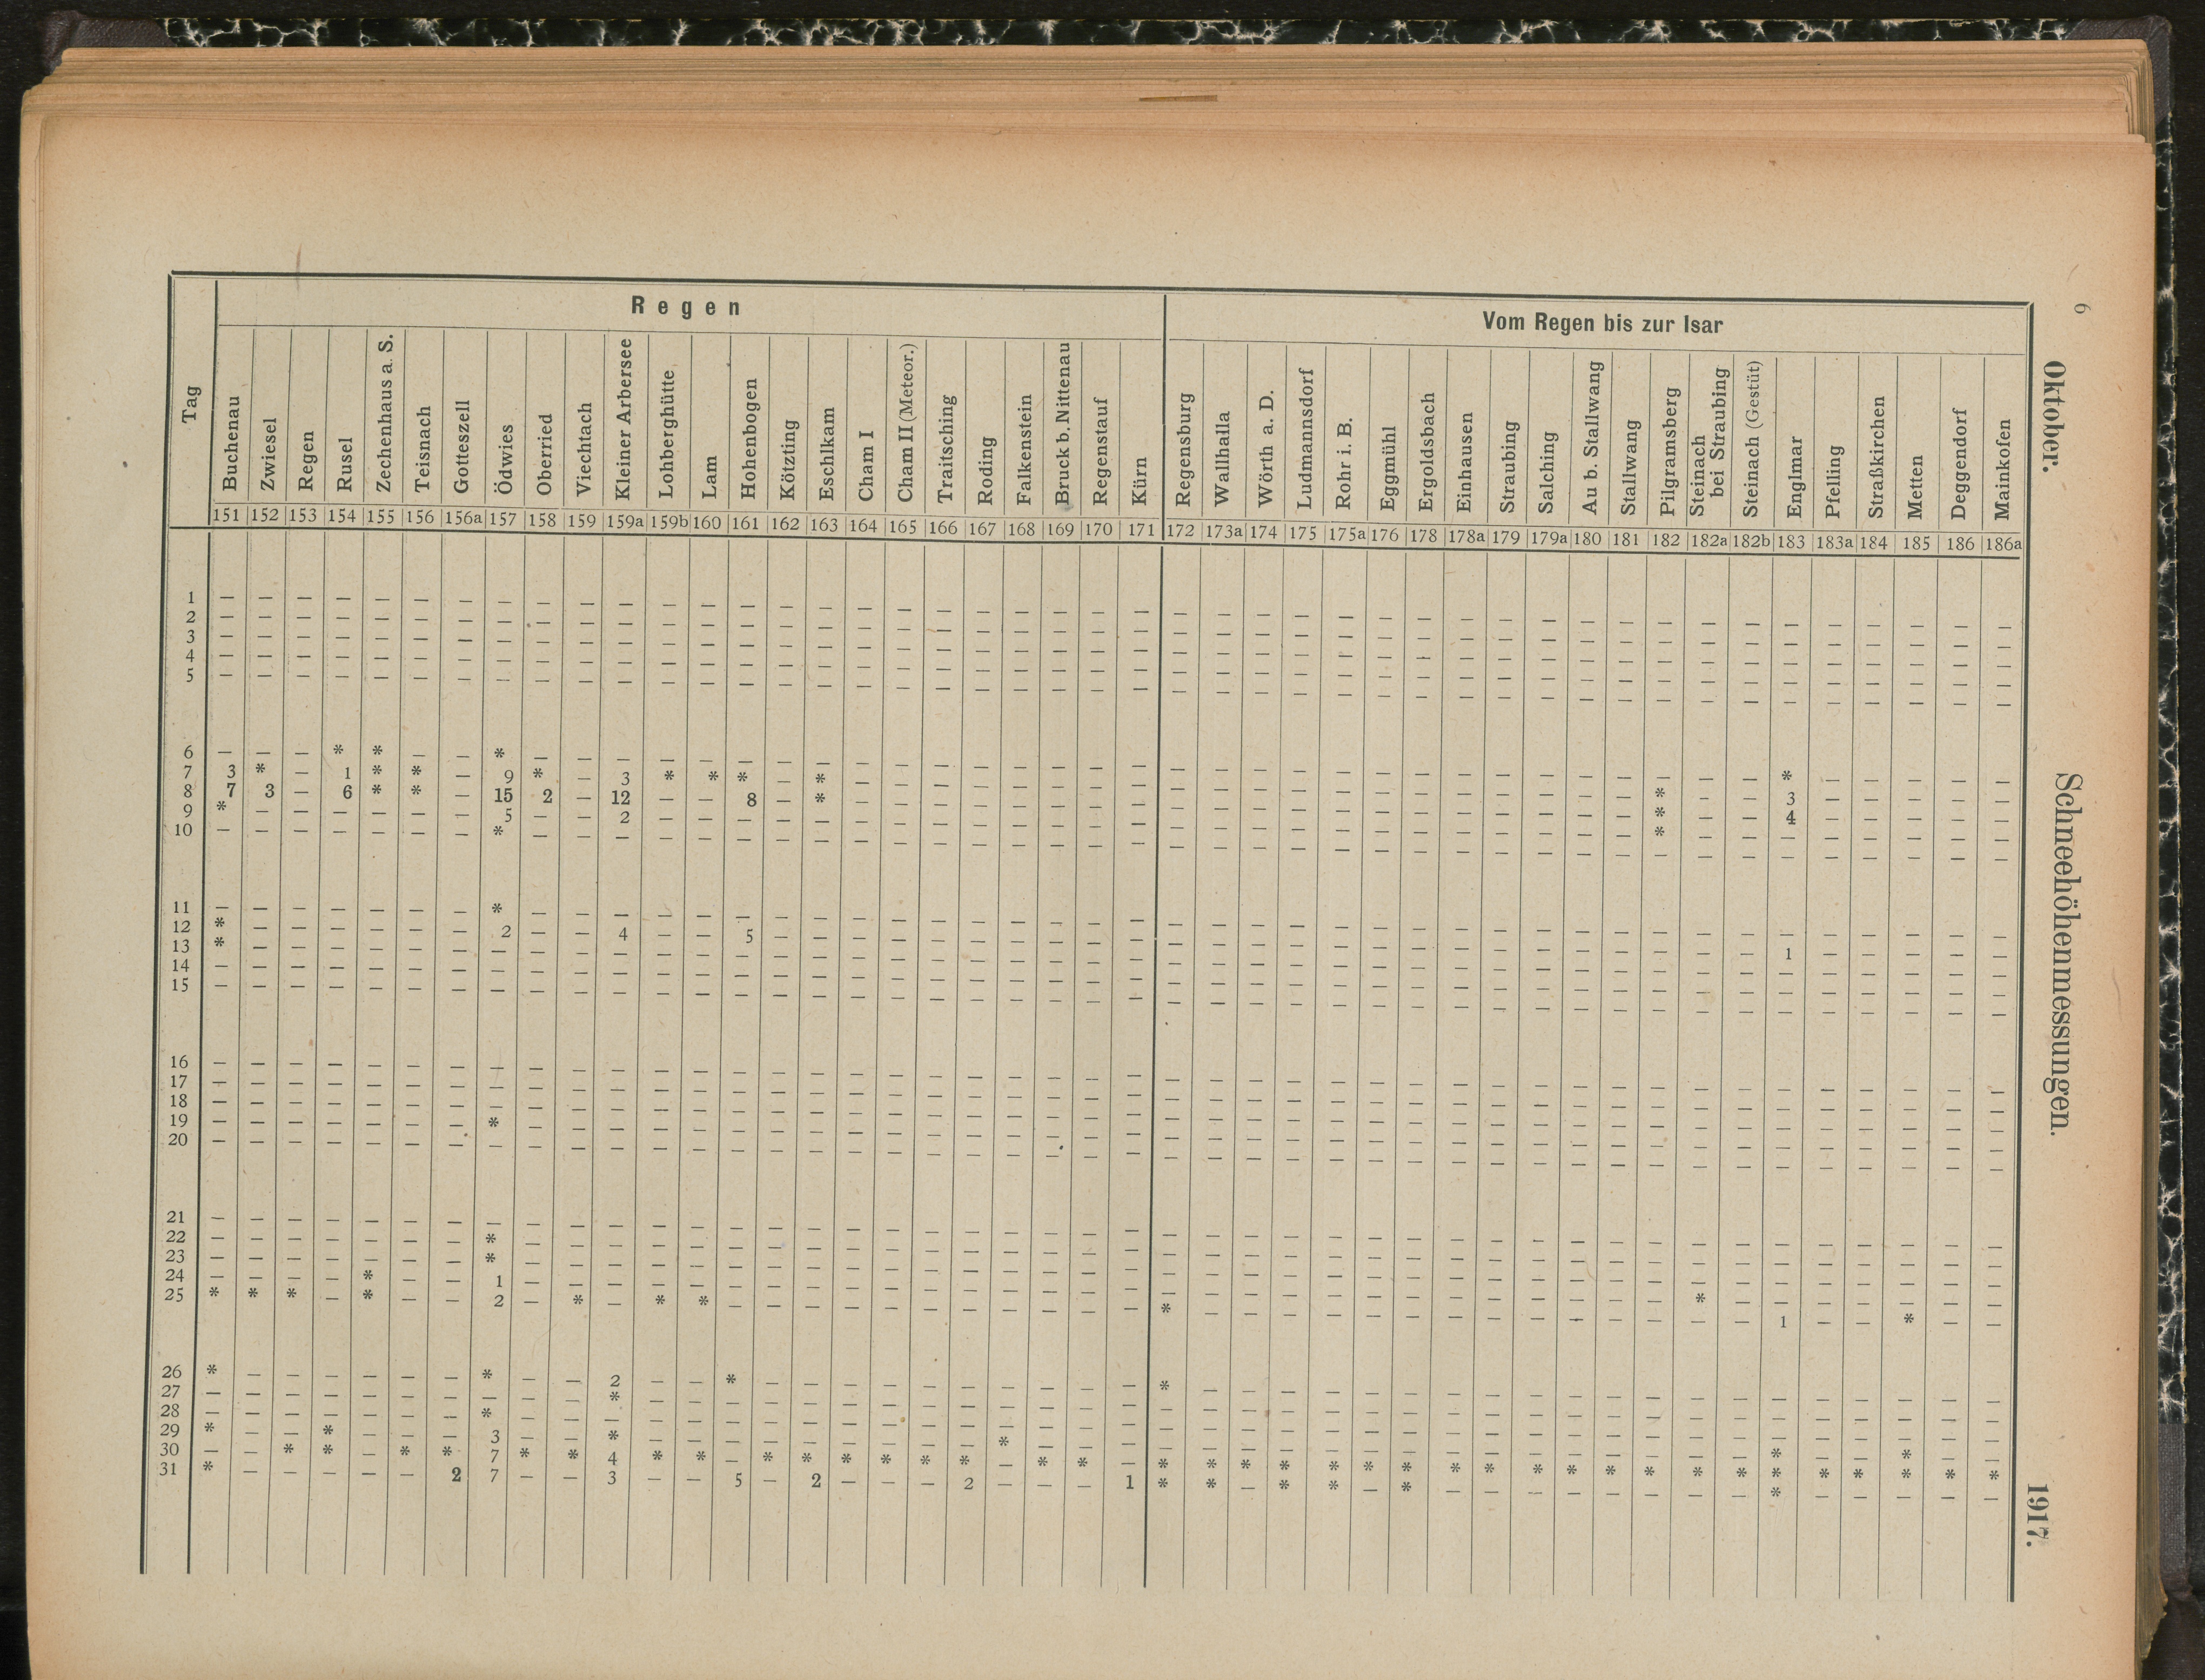 6
Oktober. Schneehöhenmessungen. 1917.
Tag Regen Vom Regen bis zur Isar
Buchenau Zwiesel Regen Rusel Zechenhaus a. S. Teisnach Gotteszell Ödwies Oberried Viechtach Kleiner Arbersee Lohberghütte Lam Hohenbogen Kötzting Eschlkam Cham I Cham II (Meteor.) Traitsching Roding Falkenstein Bruck b. Nittenau Regenstauf Kürn Regensburg Wallhalla Wörth a. D. Ludmannsdorf Rohr i. B. Eggmühl Ergoldsbach Einhausen Straubing Salching Au b. Stallwang Stallwang Pilgramsberg Steinach bei Straubing Steinach (Gestüt) Englmar Pfelling Straßkirchen Metten Deggendorf Mainkofen
151 152 153 154 155 156 156a 157 158 159 159a 159b 160 161 162 163 164 165 166 167 168 169 170 171 172 173a 174 175 175a 176 178 178a 179 179a 180 181 182 182a 182b 183 183a 184 185 186 186a
1 — — — — — — — — — — — — — — — — — — — — — — — — — — — — — — — — — — — — — — — — — — — — —
2 — — — — — — — — — — — — — — — — — — — — — — — — — — — — — — — — — — — — — — — — — — — — —
3 — — — — — — — — — — — — — — — — — — — — — — — — — — — — — — — — — — — — — — — — — — — — —
4 — — — — — — — — — — — — — — — — — — — — — — — — — — — — — — — — — — — — — — — — — — — — —
5 — — — — — — — — — — — — — — — — — — — — — — — — — — — — — — — — — — — — — — — — — — — — —
6 — — — * * — — * — — — — — — — — — — — — — — — — — — — — — — — — — — — — — — — * — — — — —
7 3 * — 1 * * — 9 * — 3 * * * — * — — — — — — — — — — — — — — — — — — — — * — — 3 — — — — —
8 7 3 — 6 * * — 15 2 — 12 — — 8 — * — — — — — — — — — — — — — — — — — — — — * — — 4 — — — — —
9 * — — — — — — 5 — — 2 — — — — — — — — — — — — — — — — — — — — — — — — — * — — — — — — — —
10 — — — — — — — * — — — — — — — — — — — — — — — — — — — — — — — — — — — — — — — — — — — — —
11 — — — — — — — * — — — — — — — — — — — — — — — — — — — — — — — — — — — — — — — — — — — — —
12 * — — — — — — 2 — — 4 — — 5 — — — — — — — — — — — — — — — — — — — — — — — — — 1 — — — — —
13 * — — — — — — — — — — — — — — — — — — — — — — — — — — — — — — — — — — — — — — — — — — — —
14 — — — — — — — — — — — — — — — — — — — — — — — — — — — — — — — — — — — — — — — — — — — — —
15 — — — — — — — — — — — — — — — — — — — — — — — — — — — — — — — — — — — — — — — — — — — — —
16 — — — — — — — — — — — — — — — — — — — — — — — — — — — — — — — — — — — — — — — — — — — — —
17 — — — — — — — — — — — — — — — — — — — — — — — — — — — — — — — — — — — — — — — — — — — — —
18 — — — — — — — — — — — — — — — — — — — — — — — — — — — — — — — — — — — — — — — — — — — — —
19 — — — — — — — * — — — — — — — — — — — — — — — — — — — — — — — — — — — — — — — — — — — — —
20 — — — — — — — — — — — — — — — — — — — — — — — — — — — — — — — — — — — — — — — — — — — — —
21 — — — — — — — — — — — — — — — — — — — — — — — — — — — — — — — — — — — — — — — — — — — — —
22 — — — — — — — * — — — — — — — — — — — — — — — — — — — — — — — — — — — — — — — — — — — — —
23 — — — — — — — * — — — — — — — — — — — — — — — — — — — — — — — — — — — — — — — — — — — — —
24 — — — — * — — 1 — — — — — — — — — — — — — — — — — — — — — — — — — — — — — * — — — — — — —
25 * * * — * — — 2 — * — * * — — — — — — — — — — — * — — — — — — — — — — — — — — 1 — — * — —
26 * — — — — — — * — — 2 — — * — — — — — — — — — — * — — — — — — — — — — — — — — — — — — — —
27 — — — — — — — — — — * — — — — — — — — — — — — — — — — — — — — — — — — — — — — — — — — — —
28 — — — — — — — * — — — — — — — — — — — — — — — — — — — — — — — — — — — — — — — — — — — — —
29 * — — * — — — 3 — — * — — — — — — — — — * — — — — — — — — — — — — — — — — — — * — — * — —
30 — — * * — * * 7 * * 4 * * — * * * * * * — * * — * * * * * * * * * * * * * * * * * * * * *
31 * — — — — — 2 7 — — 3 — — 5 — 2 — — — 2 — — — 1 * * — * * — * — — — — — — — — * — — — — —